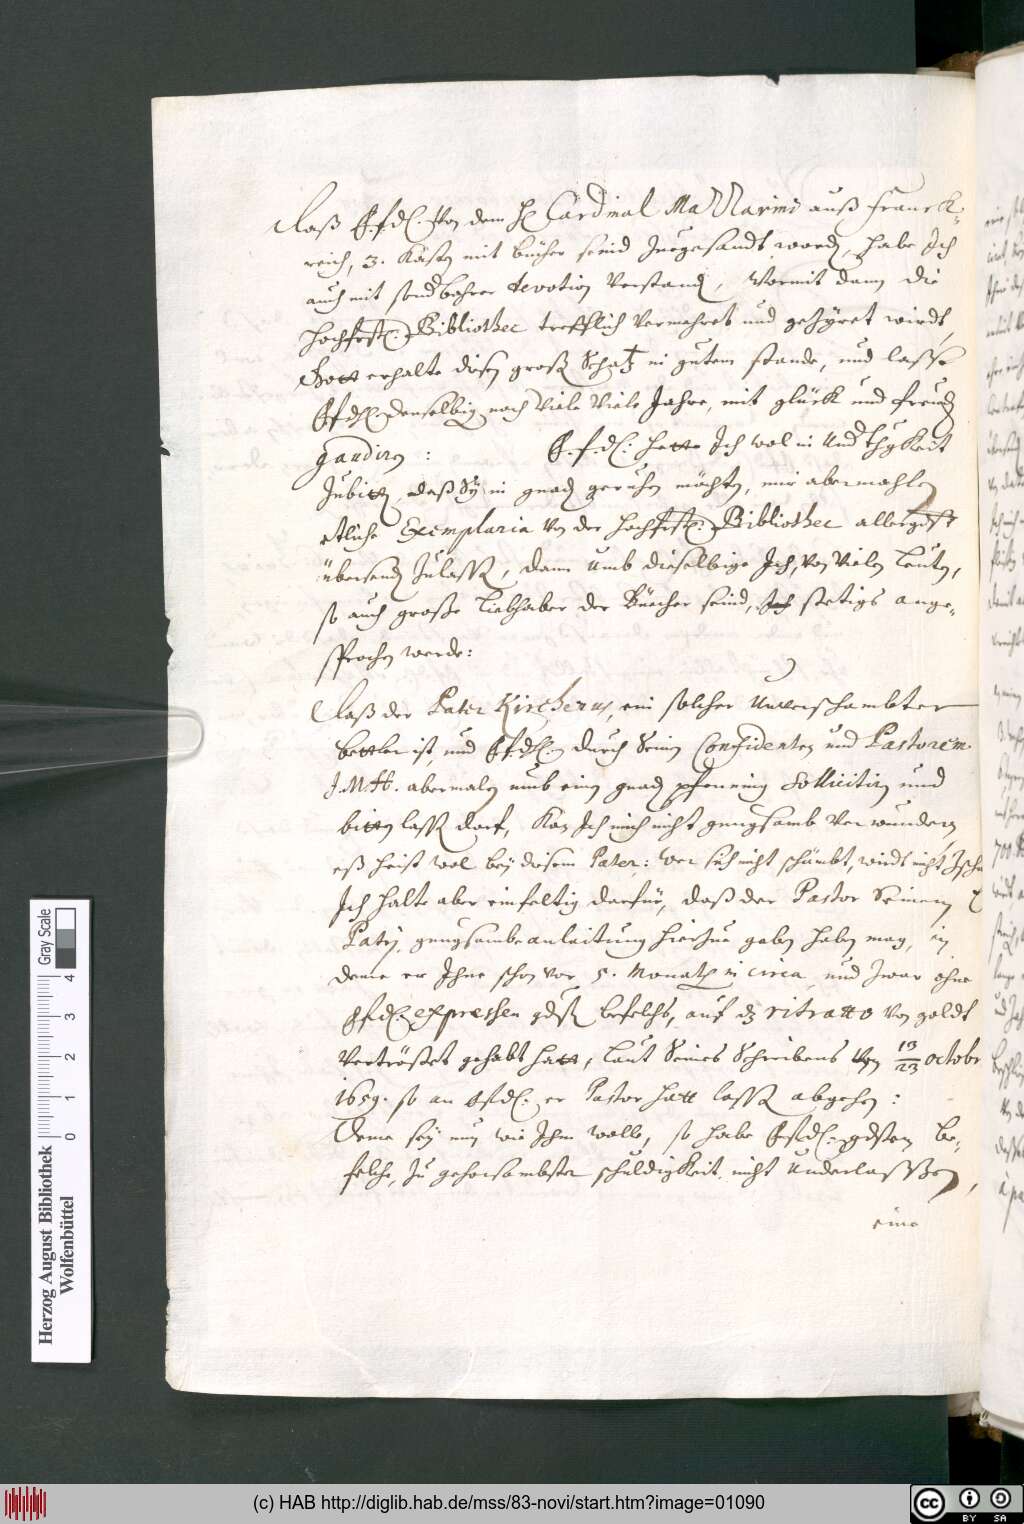 Daß E.f.dl. Von dem H. Cardinal Mazarino auß Franck-
reich, 3. Kästen mit bücher seind zuegesandt worden, habe Ich
auch mit sonderbahrer devotion verstanden, Wormit dann die
hochfrstl. Bibliothec trefflich vermehret und geziret wirdt,
Gott erhalte disen großen Schatz in gutem stande, und lasse
E.f.dl. denselbigen noch Viele Viele Jahre, mit glück und freuden
gaudiren:
E.f.dl. hette Ich wol in Underthgkeit
zubitten, daß Sy in gnaden geruhen möchten, mir abermahlen
etliche Exemplaria Von der hochfrstl. Bibliothec allergdst
übersenden zulassen, dann umb dieselbige Ich, von Vielen leuten,
so auch große liebhaber der Büecher seind, stetigs ange-
sprochen werde:
Daß der Pater Kircherus, ein solcher Unverschambter
bettler ist, und E.f.dl. durch Seinen Confidenten und Pastorem
J.M.H. abermalen umb einen gnaden pfenning Sollicitiren und
bitten lassen darf, Kan Ich mich nicht genugsamb verwundern
eß heist wol bey disem Pater: wer sich nicht schämbt, wirdt nicht
Ich halte aber einfeltig darfür, daß der Pastor Seinem
Patri, genugsambe anleitung hierzue geben haben mag, in
deme er Ihne schon vor 5. Monath in circa, und zwar ohne
E.f.dl. expressen gdsten befelchs, auf dz ritratto von goldt
Vertröstet gehabt hatt, laut Seines Schreibens Von 13/23 octobr
1659. so an E.f.dl. er Pastor hatt lassen abgehen:
Deme sey nun wie Ihm wolle, so habe E.f.dl. gdsten be-
felche, zu gehorsambster schuldigkeit nicht underlassen,
eine
Herzog August Bibliothek
Wolfenbüttel
0 1 2 3 4 Gray Scale
(c) HAB http://diglib.hab.de/mss/83-novi/start.htm?image=01090
cc BY SA